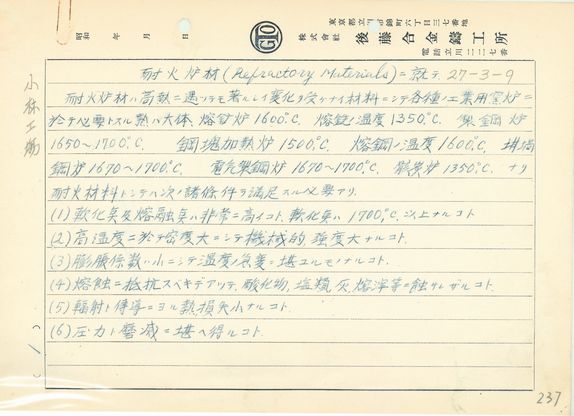 東京都立川市錦町六丁目三七番地
株式會社 後藤合金鑄工所
電話立川二二二七番
昭和 年 月 日
耐火炉材(Refractory Materials)ニ就テ. 27-3-9
耐火炉材ハ高熱ニ遇ツテモ著ルシイ変化ヲ受ケナイ材料ニシテ各種ノ工業用窯炉ニ
於テ必要トスル熱ハ大体. 熔鉱炉1600℃. 熔銑ノ温度1350℃. 製鋼炉
1650~1700℃. 鋼塊加熱炉1500℃. 熔鋼ノ温度1600℃. 坩堝
鋼炉1670~1700℃. 電気製鋼炉1670~1700℃. 炉1350℃. ナリ
耐火材料トシテハ次ノ諸條件ヲ満足スル必要アリ.
(1) 軟化点及熔融点ハ非常ニ高イコト. 軟化点ハ1700℃. 以上ナルコト
(2) 高温度ニ於テ密度大ニシテ機械的強度大ナルコト.
(3) 膨脹係数ハ小ニシテ温度ノ急変ニ堪ユルモノナルコト.
(4) 熔蝕ニ抵抗スベキデアリテ、酸化物, 塩類, 灰, 熔滓等ニ蝕サレザルコト.
(5) 輻射ト傳導ニヨル熱損失小ナルコト.
(6) 圧力ト磨滅ニ堪ヘ得ルコト.
小林工場
( 1 )
237